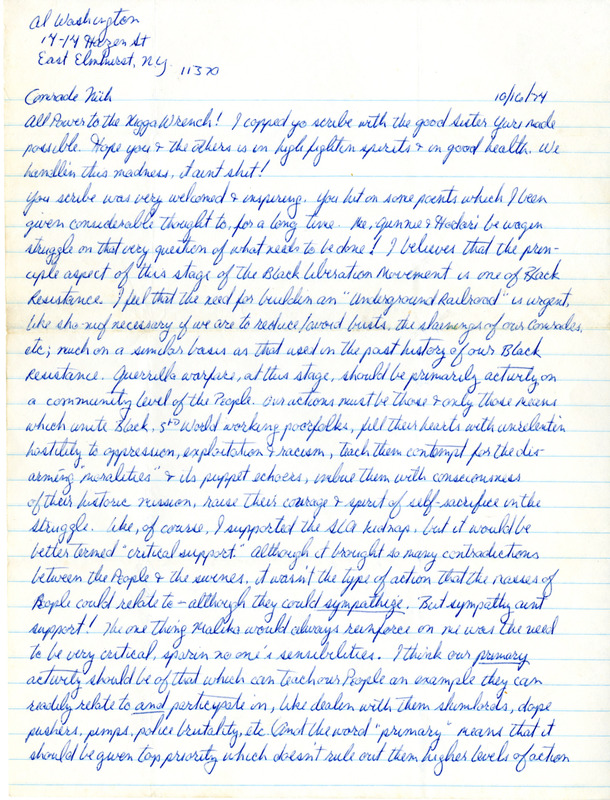 Al Washington
14-14 Hazen St
East Elmhurst, N.Y.
11370
Comrade Nuh 10/16/74
All Power to the Nigga Wrench! I copped yo scribe with the good sister Yuri made
possible. Hope you & the others is in high fightin spirits & in good health. We
handlin this madness, it aint shit!
You scribe was very welcomed & inspiring. You hit on some points which I been
given considerable thought to, for a long time. Me, Gunnie & Hadari be wagin
struggle on that very question of what needs to be done! I believes that the prin-
ciple aspect of this stage of the Black Liberation Movement is one of Black
Resistance. I feel that the need for builden an "Underground Railroad" is urgent,
like sho-nuf necessary if we are to reduce/avoid busts, the slainings of our Comrades,
etc; much on a similar basis as that used in the past history of our Black
Resistance. Guerrilla warfare, at this stage, should be primarily activity on
a community level of the People. Our actions must be those & only those means
which unite Black, 3RD World working poorfolks, fill their hearts with unrelentin
hostility to oppression, exploitation & racism, teach them contempt for the dis-
arming moralities" & its puppet echoers, imbue them with consciousness
of their historic mission, raise their courage & spirit of self-sacrifice in the
struggle. Like, of course, I supported the SLA kidnap, but it would be
better termed "critical support." Although it brought so many contradictions
between the People & the swines, it wasn't the type of action that the masses of
People could relate to - although they could sympathize. But sympathy aint
support! The one thing Malika would always reinforce on me was the need
to be very critical, sparin no one's sensibilities. I think our primary
activity should be of that which can teach our People an example they can
readily relate to and participate in, like dealen with them slumlords, dope
pushers, pimps, police brutality, etc. (And the word "primary" means that it
should be given top priority which doesn't rule out them higher levels of action